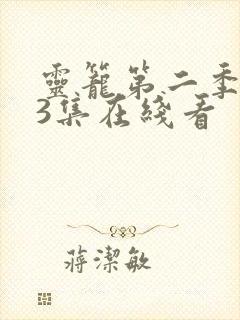 靈籠第二季
3集在綫看
蔣潔敏